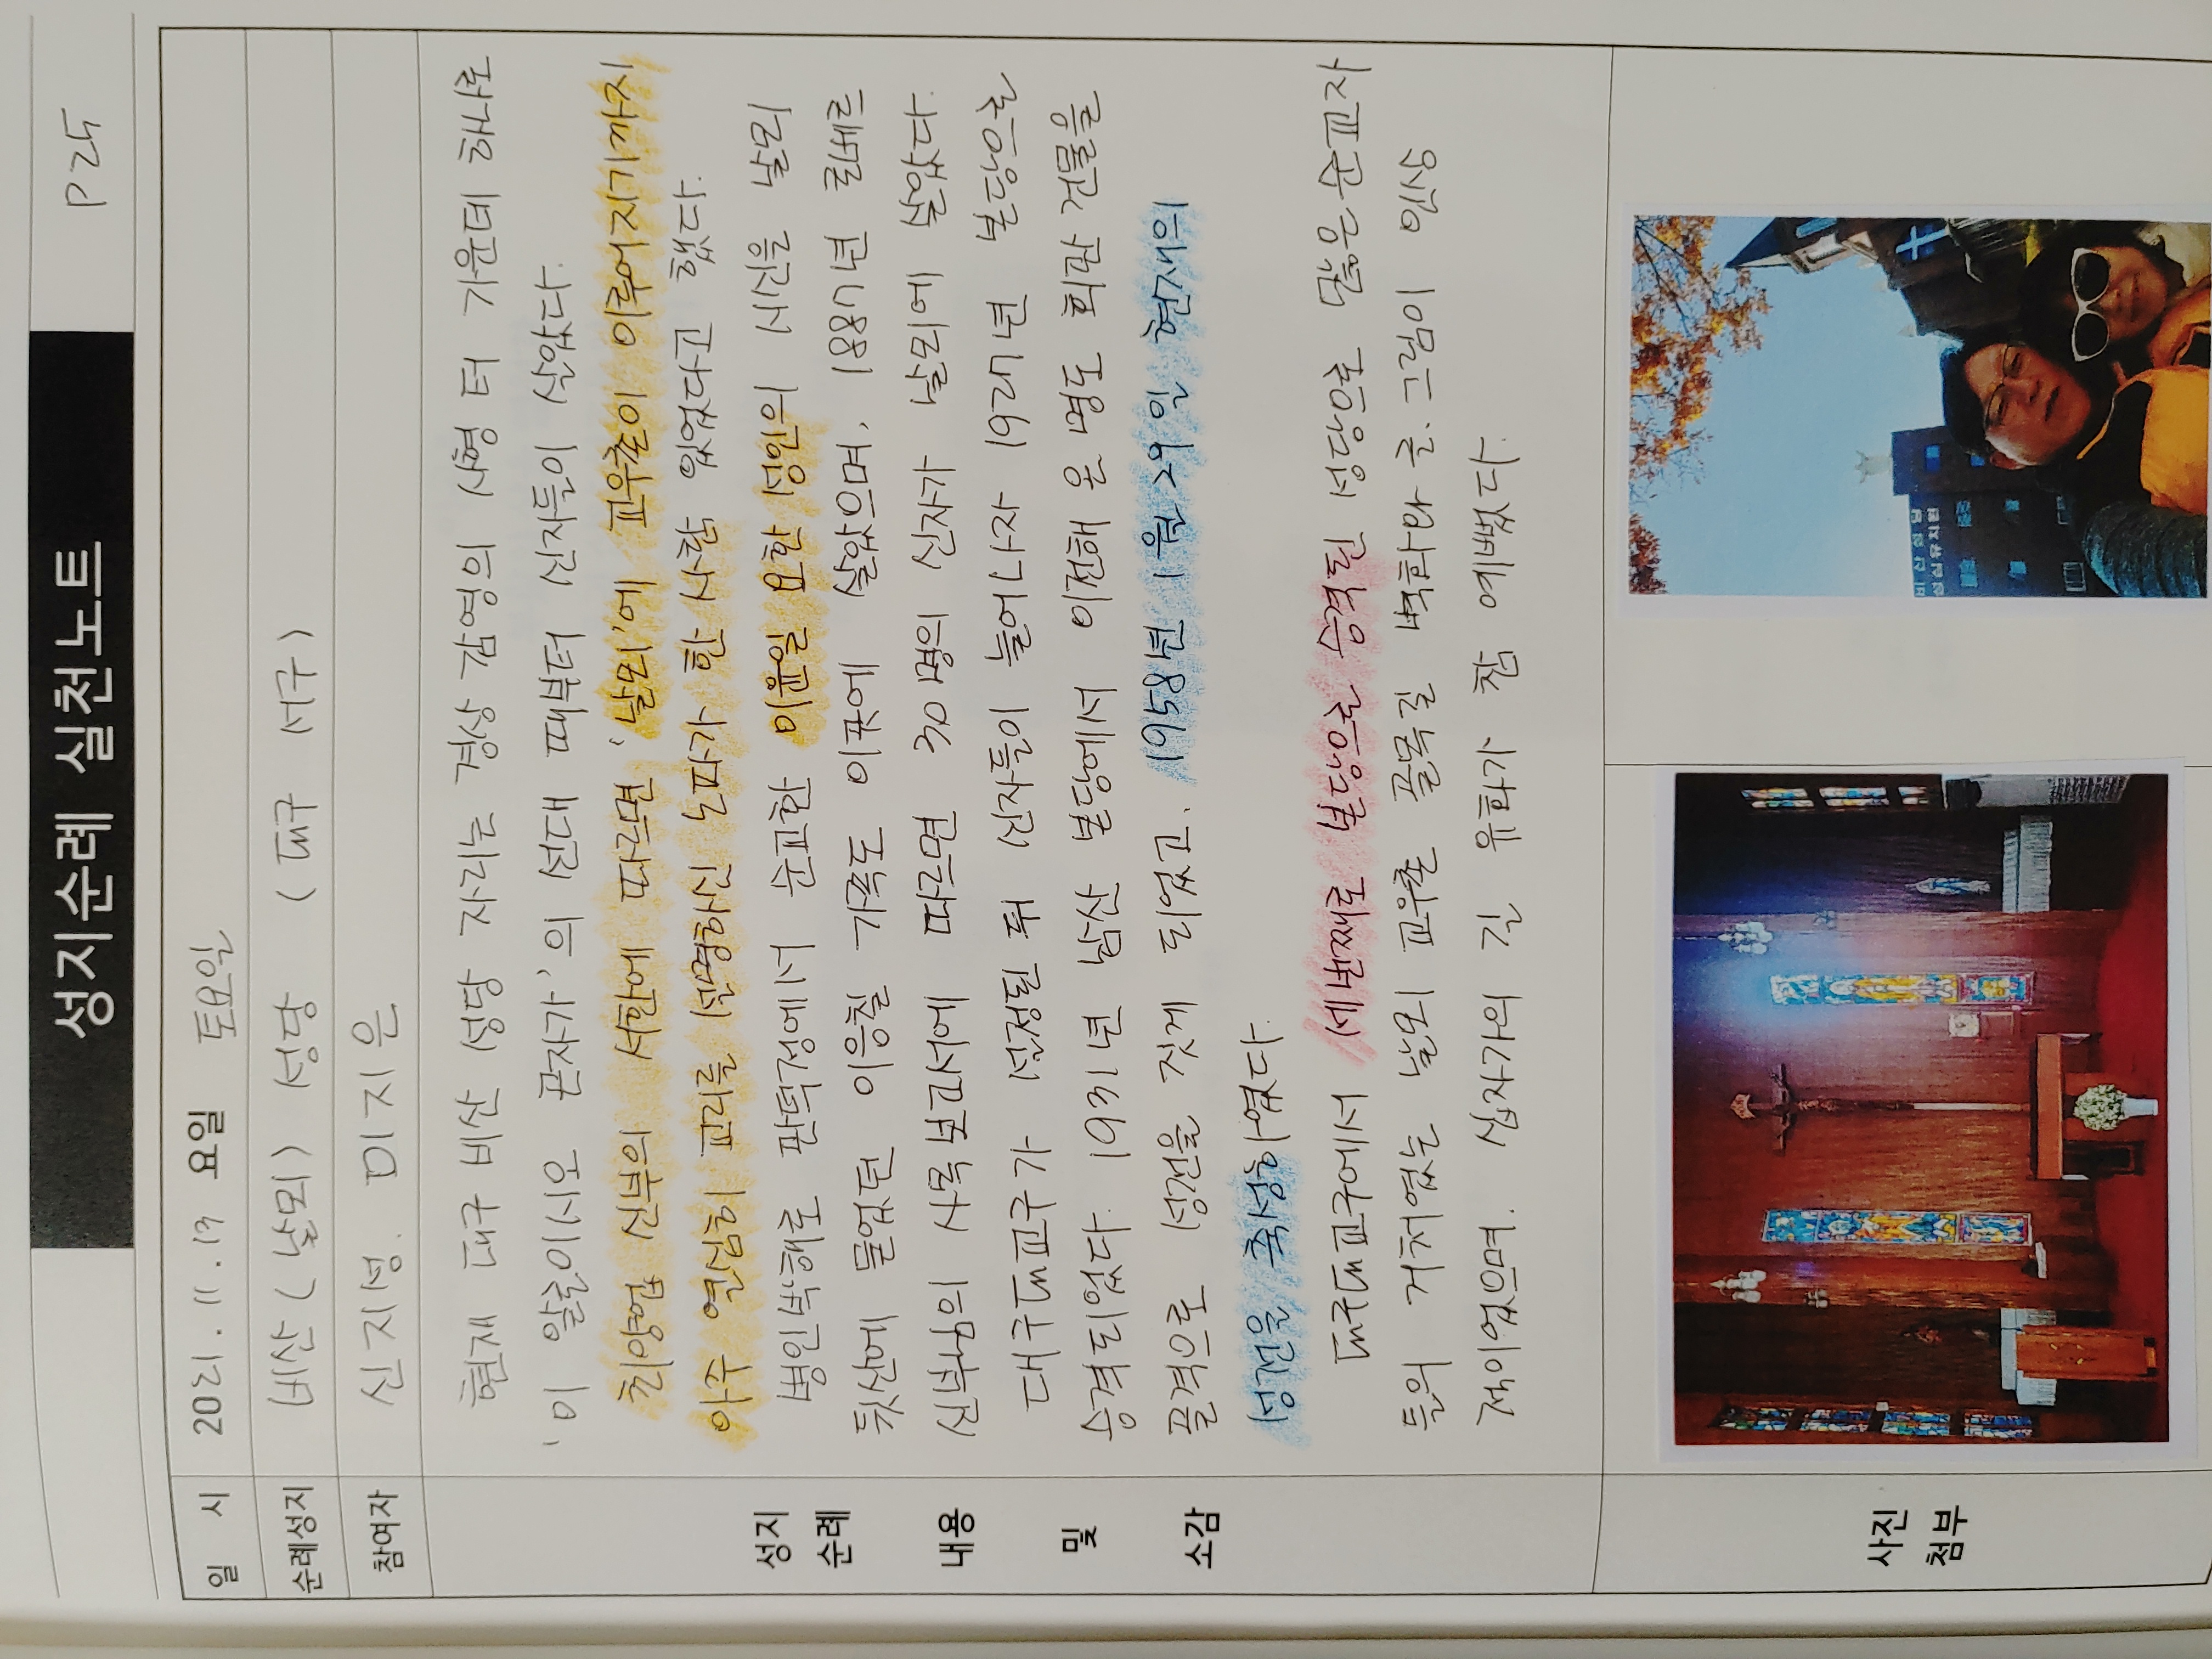 성지순례 실천노트
P 25
일 시 2021. 11. 13 요일 토요일
순례성지 비산(날뫼) 성당 (대구 서구)
참여자 신지성. 미지은
성지 순례 내용 및 소감
현재 대구 비산 성당 자리는 경상 감영의 사형 터 가운데 하나로
'이 알로이시오 곤자가'의 선대 때부터 신자들이 살았다.
최양업 신부의 서한에 따르면 '날뫼'에 교우촌이 이루어지기까지
아주 열심히 교리를 설명하신 노파가 한 사람 있었다고 했다.
병인박해로 관덕정에서 순교한 이윤일 요한 성인의 시신을 날뫼
뒷산에 묻었던 이응칠 가족도 이곳에 살았으며, 1887년 로베르
신부님의 사목보고서에 따르면 30명의 신자가 날뫼에 살았다.
대구대교구가 설정된 뒤 신자들이 늘어나자 1927년 본당으로
승격되었다. 1931년 남산 본당에서 이전해 온 명도 회관 건물을
골격으로 성전을 짓게 되었고, 1958년 1월 29일 현재의
성전을 축성하였다.
대구대교구에서 세번째로 본당으로 승격된 성당으로 많은 순교자
들의 거처였는 날뫼 교우촌 골목길 벽화와 글.그림이 인상
적이었으며, 십자가의 길 유화가 참 예뻤다.
사진 첨부
비산성당
성심유치원